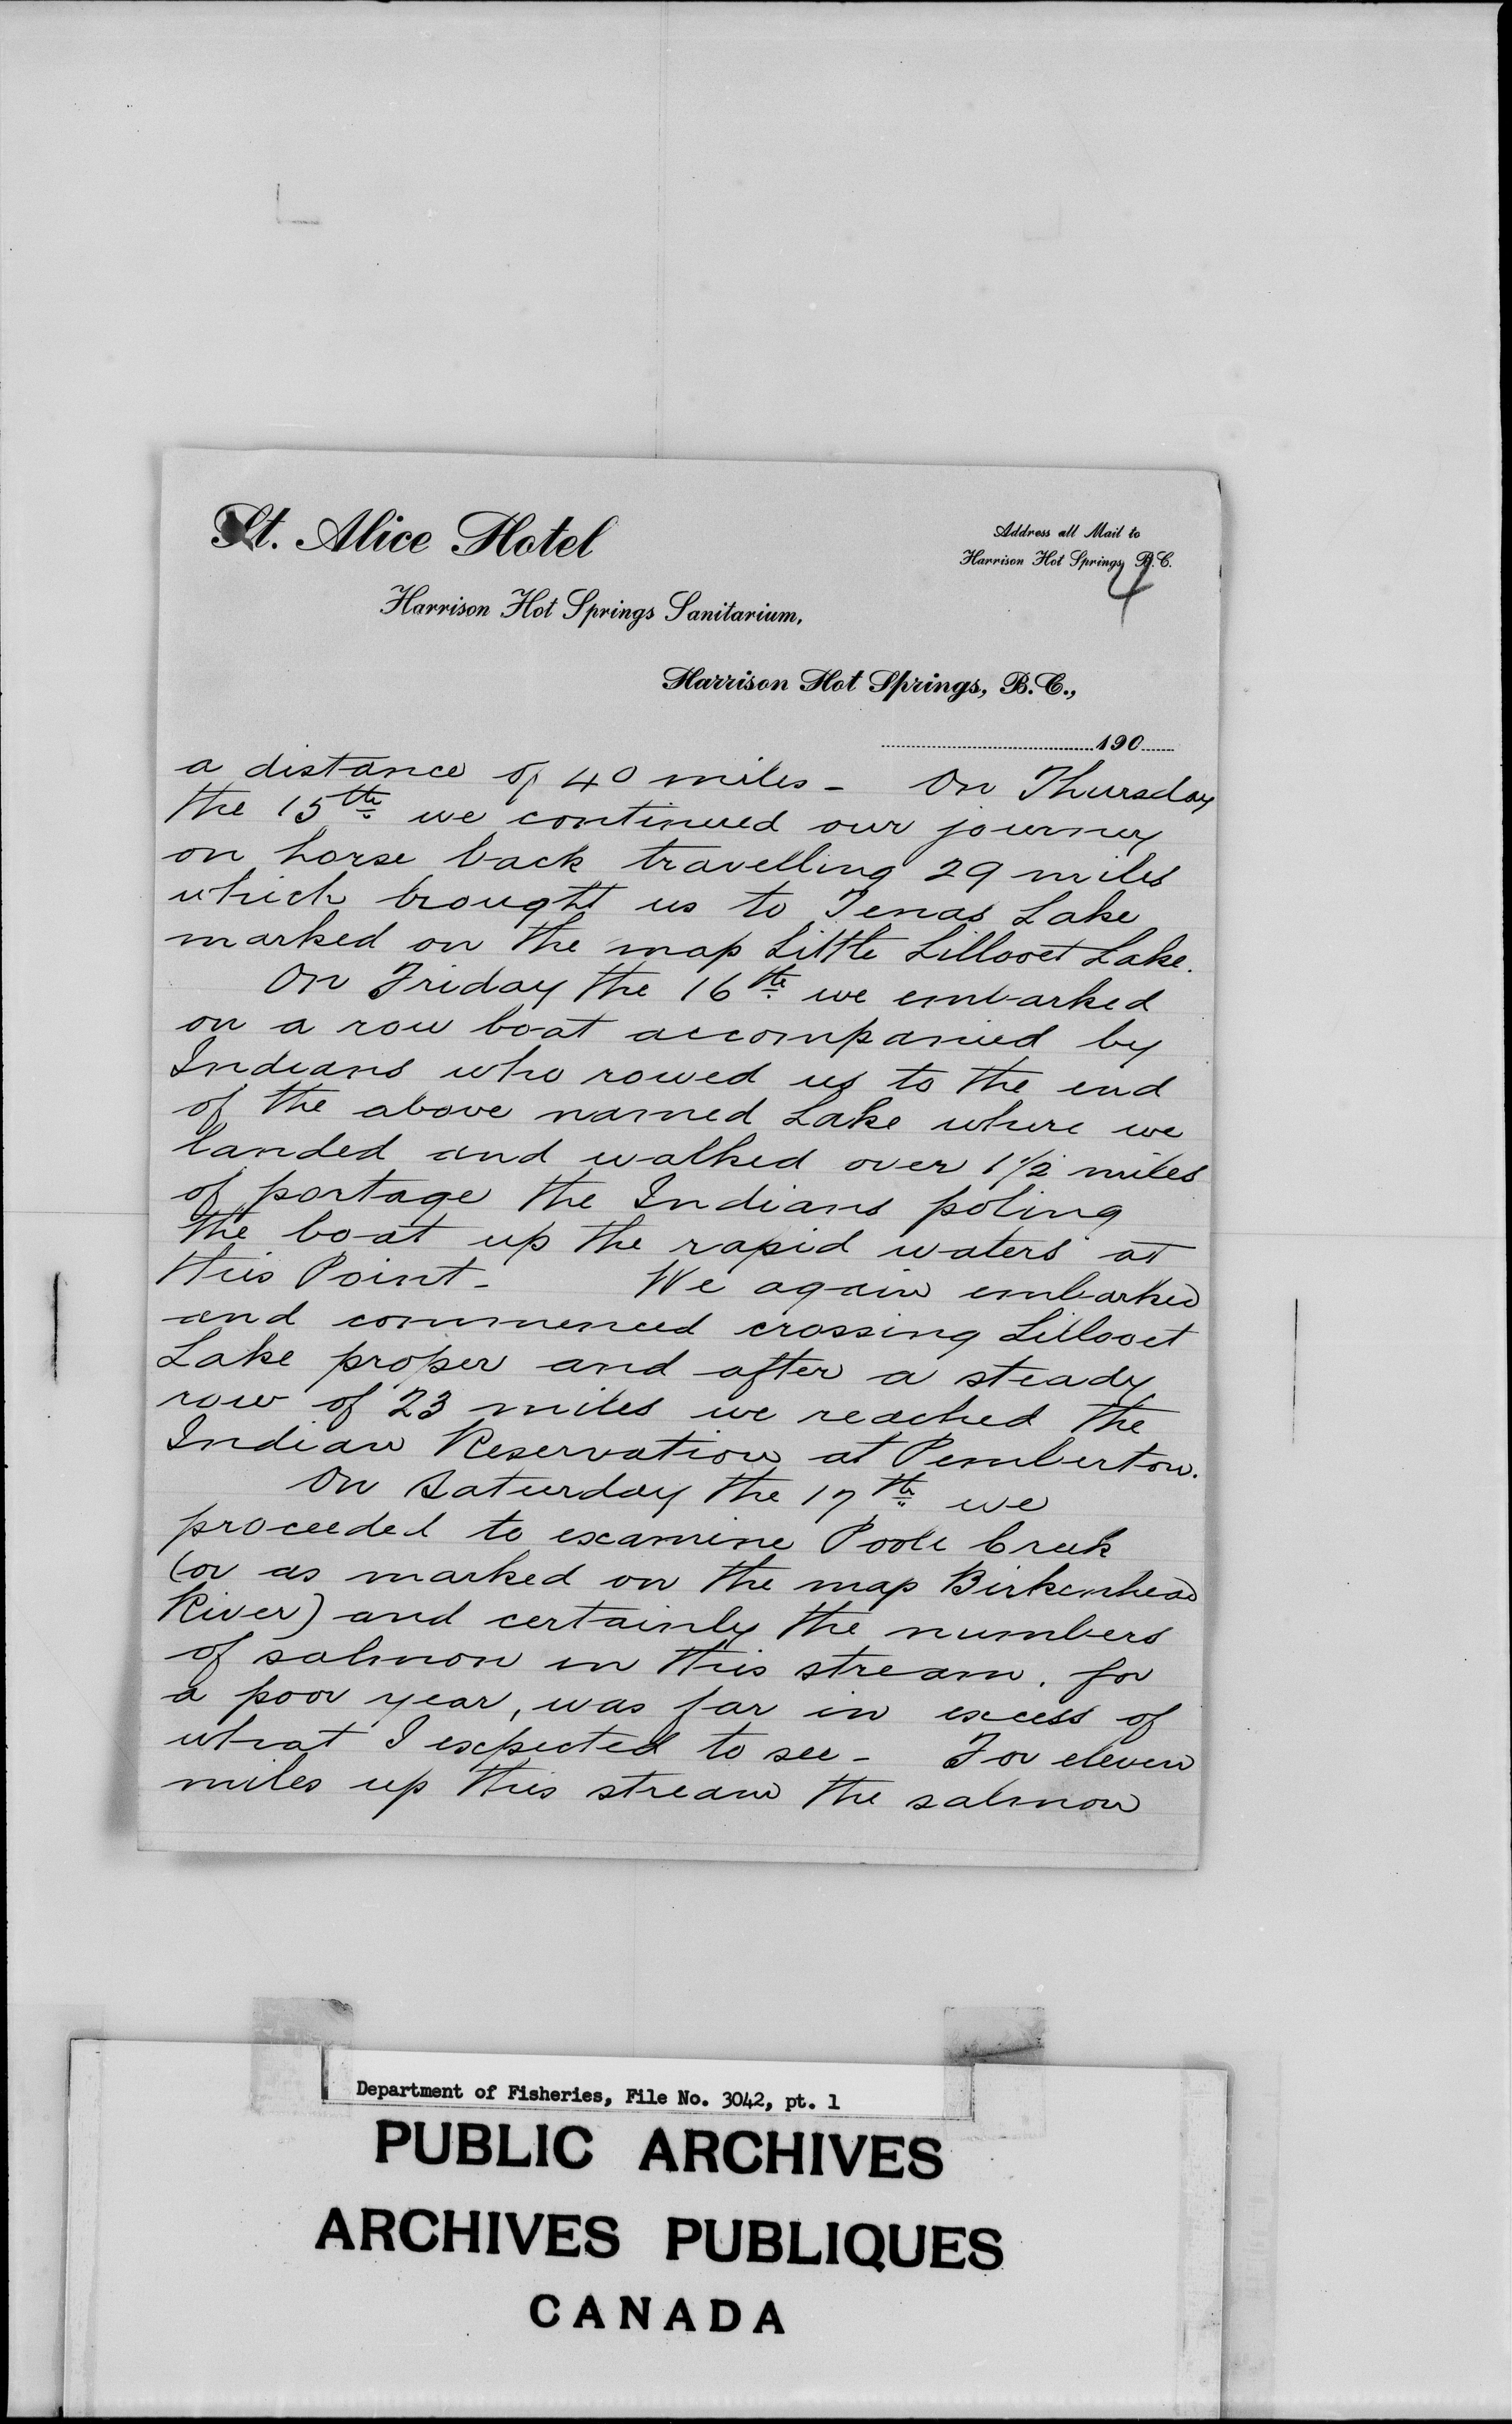 St. Alice Hotel
Address all Mail to
Harrison Hot Springs, B.C.
4
Harrison Hot Springs Sanitarium,
Harrison Hot Springs, B.C.,
190
a distance of 40 miles - On Thursday
the 15th we continued our journey
on horse back travelling 29 miles
which brought us to Tenas Lake
marked on the map Little Lillooet Lake.
On Friday the 16th we embarked
on a row boat accompanied by
Indians who rowed us to the end
of the above named Lake where we
landed and walked over 1 1/2 miles
of portage the Indians poling
the boat up the rapid waters at
this Point - We again embarked
and commenced crossing Lillooet
Lake proper and after a steady
row of 23 miles we reached the
Indian Reservation at Pemberton.
On Saturday the 17th we
proceeded to examine Poole Creek
(or as marked on the map Birkenhead
River) and certainly the numbers
of salmon in this stream, for
a poor year, was far in excess of
what I expected to see - For eleven
miles up this stream the salmon
Department of Fisheries, File No. 3042, pt. 1
PUBLIC ARCHIVES
ARCHIVES PUBLIQUES
CANADA